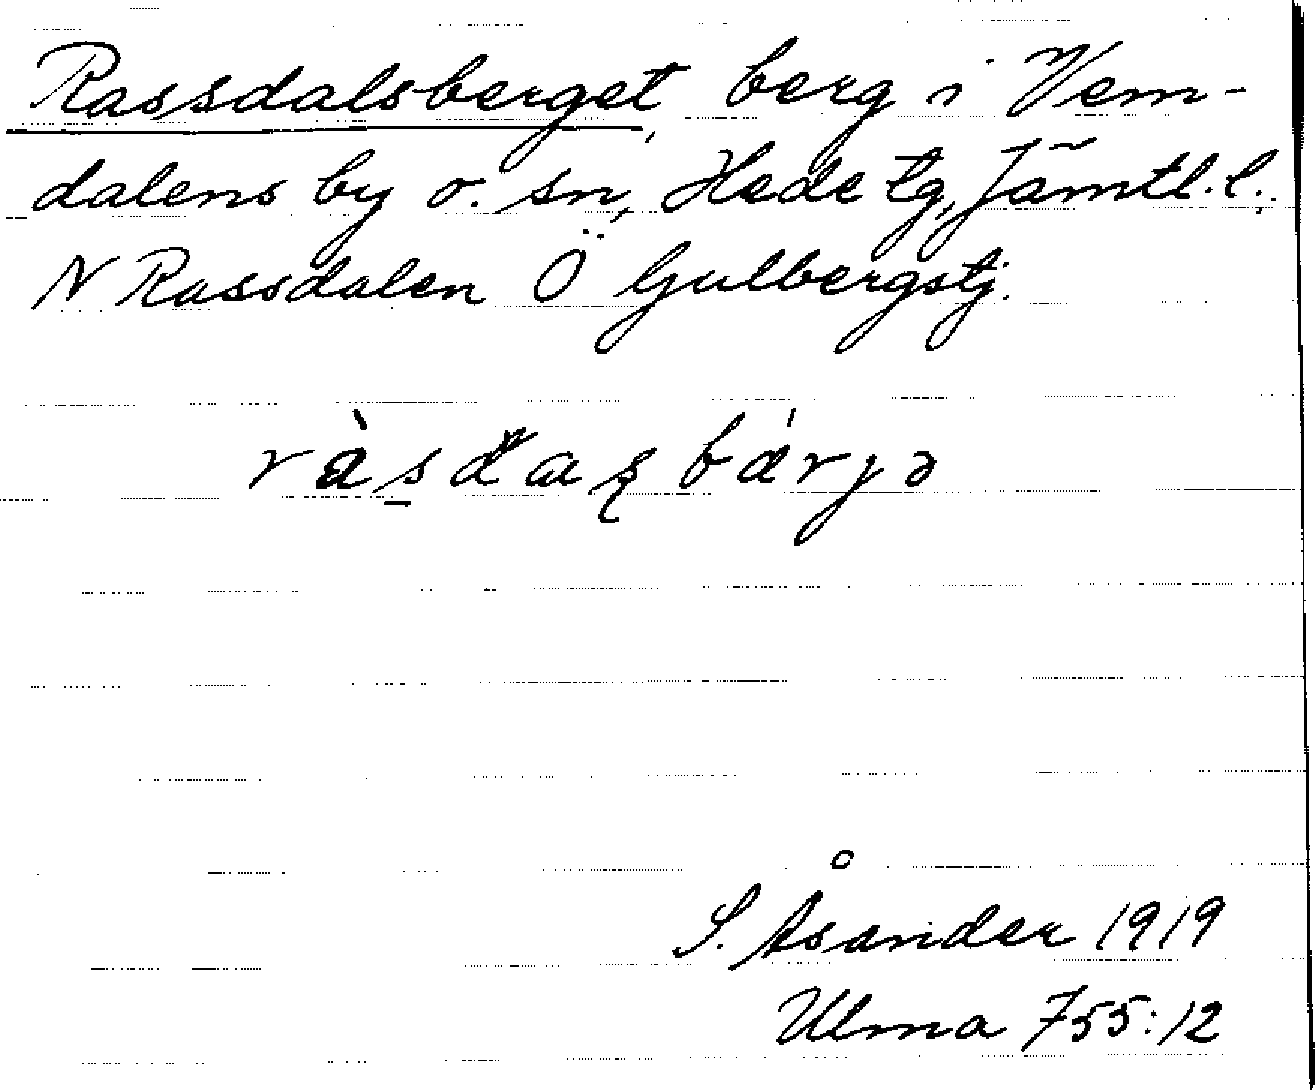 Rassdalsberget, berg i Vem-
dalens by o. sn, Hede tg, Jämtl. l.
N Rassdalen Ö Gulbergstj.
S. Åsander 1919
Ulma 755:12